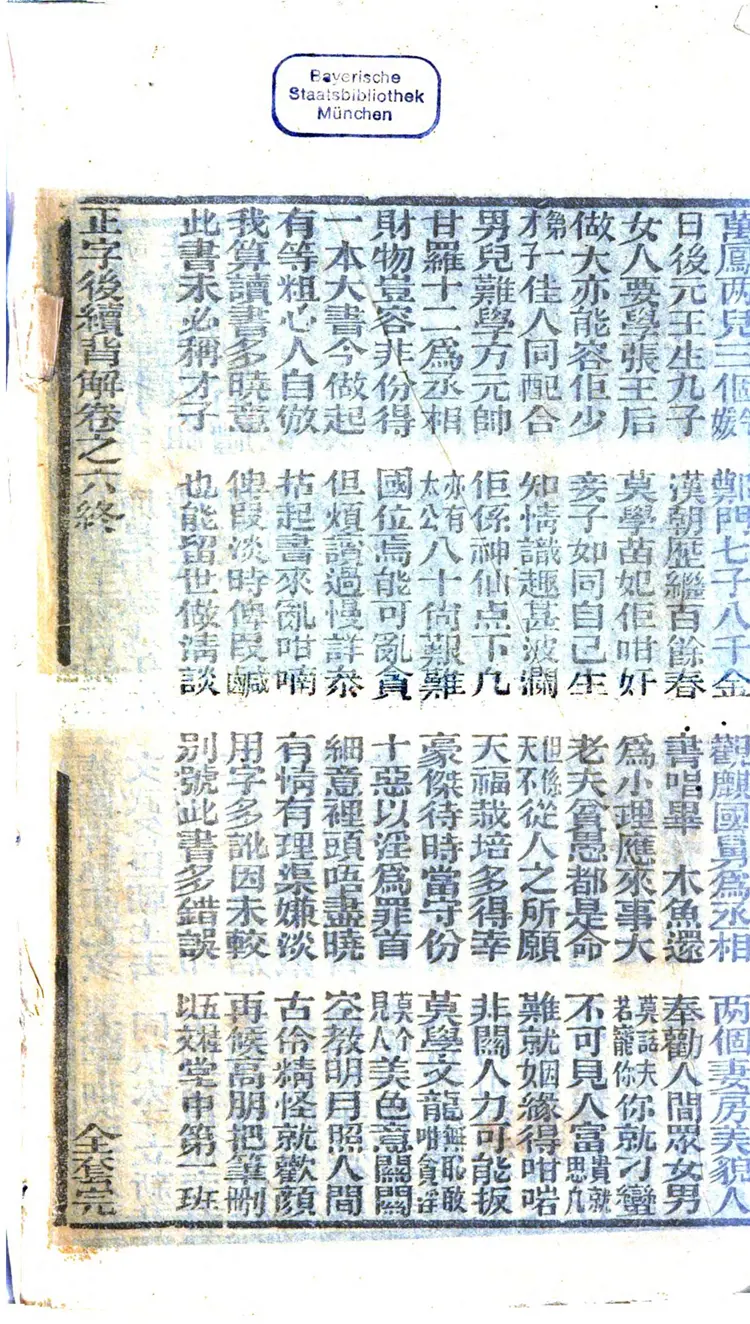 Bayerische
Staatsbibliothek
München
萬鳳两兒三個媛 鄭門七子八千金 觀麒國舅爲丞相 两個妻房美貌人
日後元王生九子 漢朝歷繼百餘春 書唱畢 木魚還 奉勸人間眾女男
女人要學張王后 莫學苗妃佢咁奸 爲小理應來事大 莫話夫若寵你你就刁蠻
做大亦能容佢少 妾子如同自己生 老夫貧愚都是命 不可見人富貴就思凡
第一才子佳人同配合 知情識趣甚波瀾 但係天不從人之所願 難就姻緣得咁啱
男兒難學方元帥 佢係神仙点下凡 天福栽培多得幸 非關人力可能扳
甘羅十二爲丞相 亦有太公八十尚艱難 豪傑待時當守份 莫學文龍無恥敢咁貪淫
財物豈容非份得 國位焉能可亂貪 十惡以淫爲罪首 莫个見人美色意關關
一本大書今做起 但煩讀過慢詳叅 細意裡頭唔盡曉 空教明月照人間
有等粗心人自倣 拈起書來亂咁喃 有情有理渠嫌淡 古伶精怪就歡顔
我算讀書多曉意 俾段淡時俾段鹹 用字多訛因未較 再候高朋把筆刪
此書未必稱才子 也能留世做淸談 別號此書多錯誤 以文五桂堂中第二班
正字後續背解卷之六終 全套完